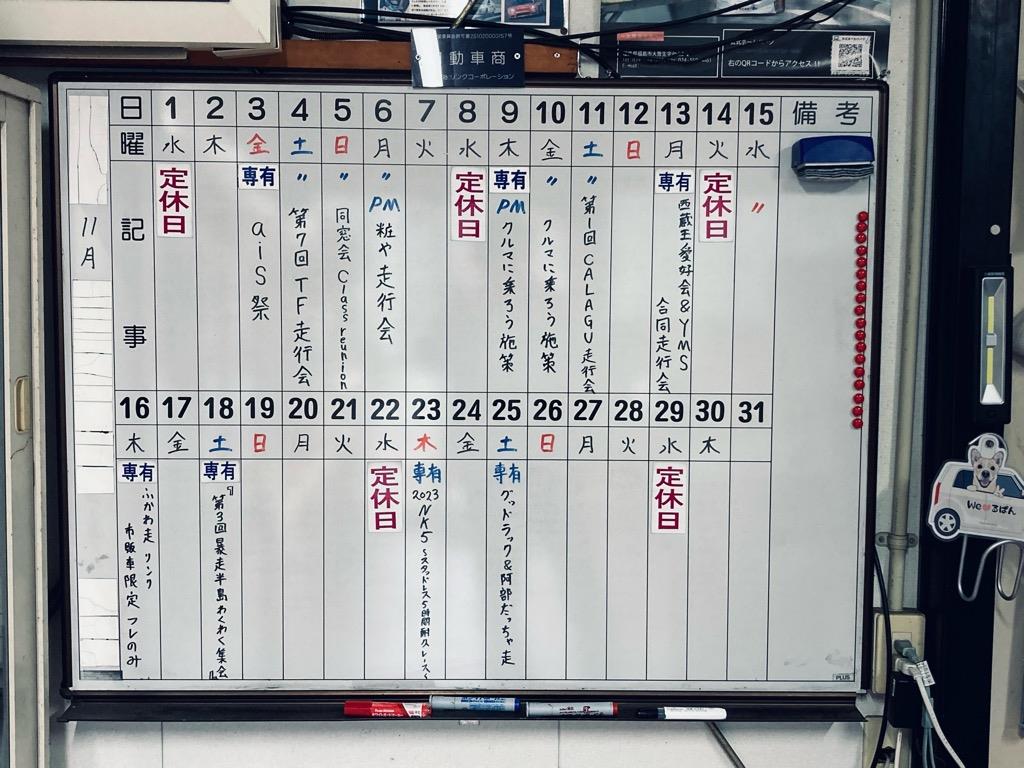 動車商
右のQRコードからアクセス!!
11月
日 1 2 3 4 5 6 7 8 9 10 11 12 13 14 15 備考
曜 水 木 金 土 日 月 火 水 木 金 土 日 月 火 水
記事
定休日
専有
aiS祭
〃
第7回TF走行会
〃
同窓会 Class reunion
〃
PM
粧や走行会
定休日
専有
PM
クルマに乗ろう施策
〃
クルマに乗ろう施策
〃
第1回CALAGU走行会
専有
西蔵王愛好会&YMS
合同走行会
定休日
〃
16 17 18 19 20 21 22 23 24 25 26 27 28 29 30 31
木 金 土 日 月 火 水 木 金 土 日 月 火 水 木
専有
ふかわ走リンク
市販車限定 フレのみ
専有
第3回暴走半島わくわく集会
定休日
専有
2023 NK5 ~スタッドレス5時間耐久レース~
専有
グッドラック&阿部だっちゃ走
定休日
PLUS
We♥るぱん